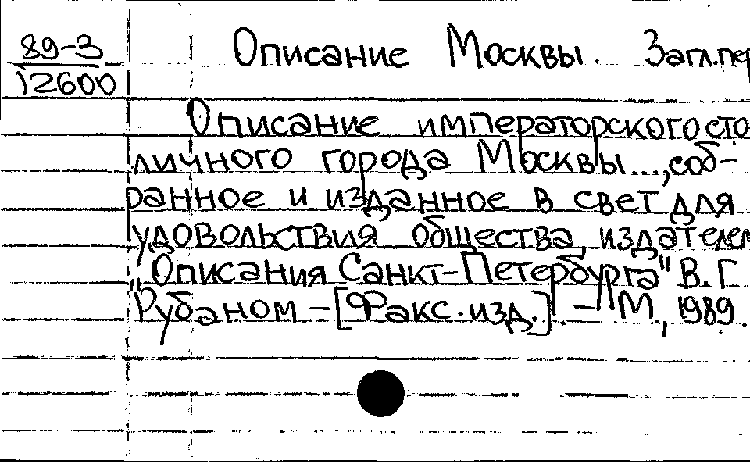 89-3
12600
Описание Москвы. Загл.пер
Описание императорского сто
личного города Москвы...,соб-
ранное и изданное в свет для
удовольствия общества, издателем
"Описания Санкт-Петербурга" В.Г.
Рубаном - [Факс.изд.]. - М., 1989.